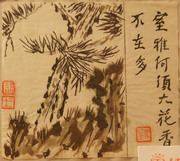 室雅何須大花香
不在多